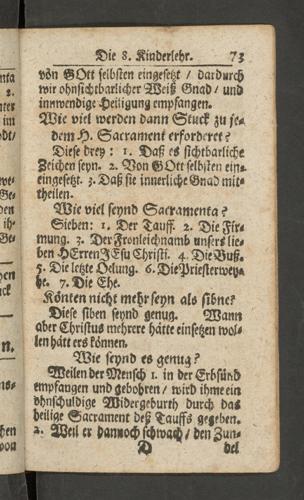 Die 8. Kinderlehr. 73
von GOtt selbsten eingesetzt / dardurch
wir ohnsichtbarlicher Weiß Gnad / und
innwendige Heiligung empfangen.
Wie viel werden dann Stuck zu je-
dem H. Sacrament erforderet?
Diese drey : 1. Daß es sichtbarliche
Zeichen seyn. 2. Von GOtt selbsten ein-
eingesetzt. 3. Daß sie innerliche Gnad mit-
theilen.
Wie viel seynd Sacramenta?
Sieben: 1. Der Tauff. 2. Die Fir-
mung. 3. Der Fronleichnamb unsers lie-
ben HErren JEsu Christi. 4. Die Buß.
5. Die letzte Oelung. 6. Die Priesterwey-
he. 7. Die Ehe.
Könten nicht mehr seyn als sibne?
Diese siben seynd genug. Wann
aber Christus mehrere hätte einsetzen wol-
len hätt ers können.
Wie seynd es genug?
Weilen der Mensch 1. in der Erbsünd
empfangen und gebohren / wird ihme ein
ohnschuldige Widergeburth durch das
heilige Sacrament deß Tauffs gegeben.
2. Weil er dannoch schwach / den Zun-
D del